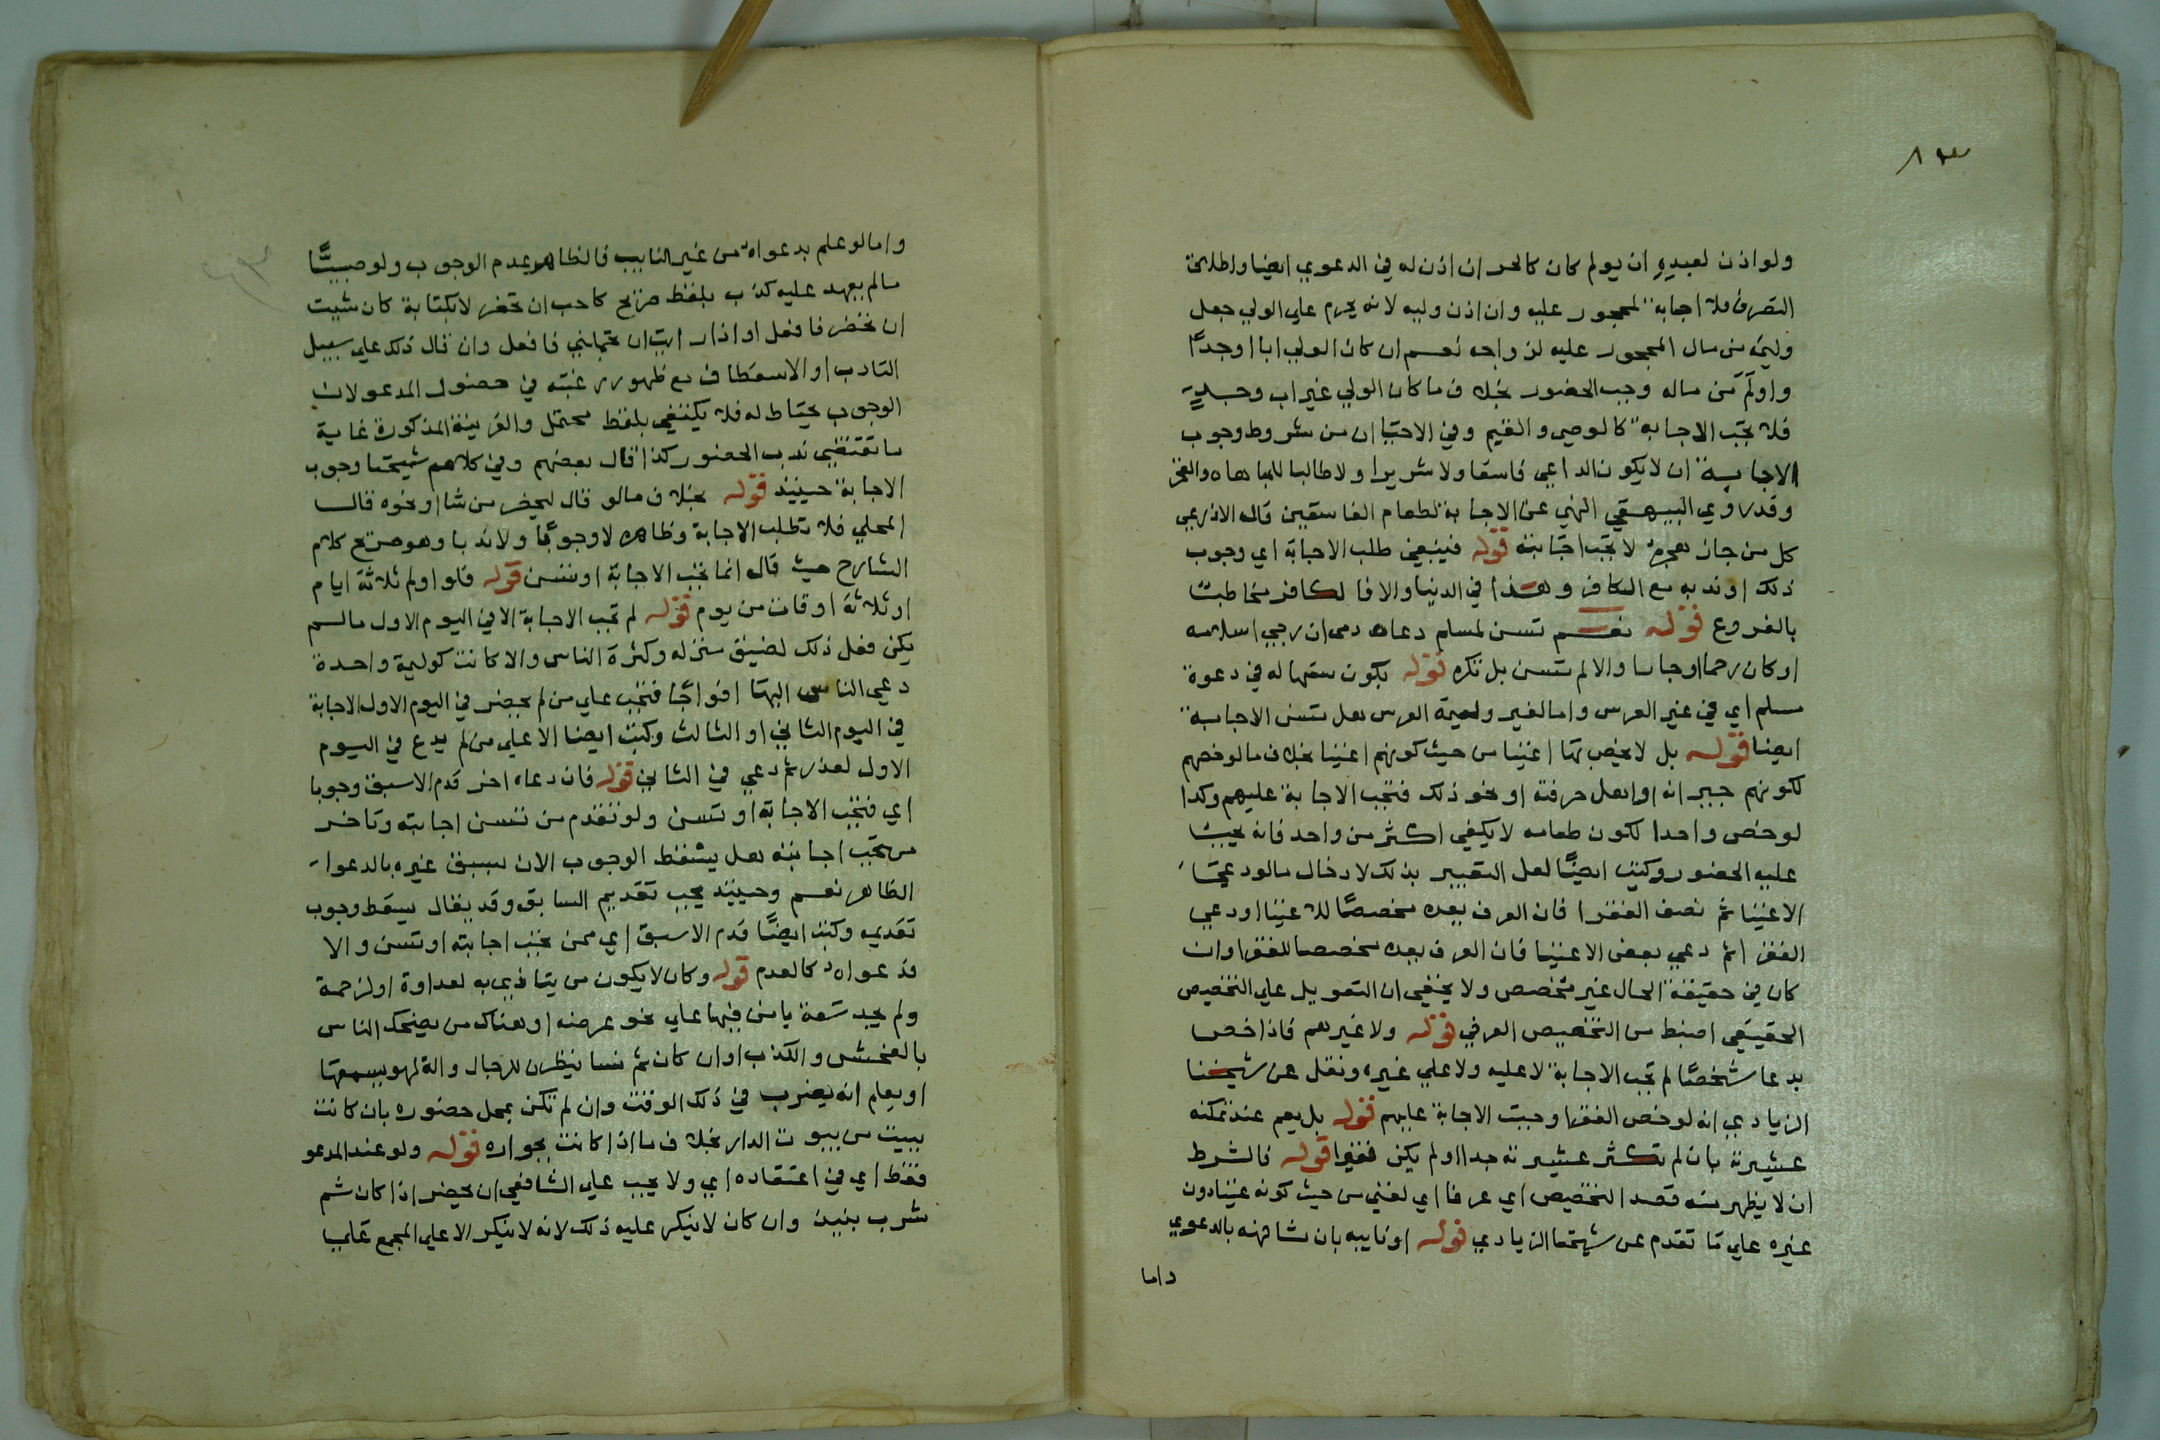 ولو اذن لعبده ان يولم كان كالحر ان اذن له في الدعوي ايضا واطلاق
التصرف فلا اجابة لمحجور عليه وان اذن وليه لانه يحرم علي الولي جعل
وليمة من مال المحجور عليه لزواجه نعم ان كان الولي ابا اوجدا
واولم من ماله وجب الحضور بخلاف ما كان الولي غير اب وجد
فلا تجب الاجابة كالوصي والقيم وفي الاحيا ان من شروط وجوب
الاجابة ان لا يكون الداعي فاسقا ولا شريرا ولا طالبا للمباهاه والفخر
وقد روي البيهقي النهي عن الاجابة لطعام الفاسقين قال الاذرعي
كل من جاز هجره لا تجب اجابته قوله فينبغي طلب الاجابة اي وجوب
ذلك او ندبه مع الكافر وهذا في الدنيا والا فالكافر مخاطب
بالفروع قوله نعم تسن لمسلم دعاه ذمي ان رجي اسلامه
او كان رحما اوجارا والا لم تسن بل تكره قوله يكون سعيها له في دعوة
مسلم اي في غير العرس واما لغير وليمة العرس هل تسن الاجابة
ايضا قوله بل لا يخص بها اغنيا من حيث كونهم اغنيا بخلاف ما لو خصهم
لكونهم جيرانه او اهل حرفته او نحو ذلك فتجب الاجابة عليهم وكذا
لو خص واحدا لكون طعامه لا يكفي اكثر من واحد فانه يجب
عليه الحضور وكتب ايضا لعل التعبير بذلك لادخال ما لو دعي
الاغنيا ثم نصف الفقرا فان العرف يعده مخصصا للاغنيا او دعي
الفقرا ثم دعي بعض الاغنيا فان العرف يعده مخصصا للفقرا وان
كان في حقيقة الحال غير مخصص ولا يخفي ان التعويل علي التخصيص
الحقيقي اضبط من التخصيص العرفي قوله ولا غيرهم فاذا خص
بدعا شخصا لم تجب الاجابة لا عليه ولا علي غيره ونقل عن شيخنا
الزيادي انه لو خص الفقرا وجبت الاجابة عليهم قوله بل يعم عند تمكنه
عشيرته بان لم تكثر عشيرته جدا او لم يكن فقيرا قوله فالشرط
ان لا يظهر منه قصد التخصيص اي عرفا اي لغني من حيث كونه غنيا دون
غيره علي ما تقدم عن شيخنا الزيادي قوله او نايبه بان شافهه بالدعوي
واما
واما لو علم بدعواه من غير النايب فالظاهر عدم الوجوب ولو صبيا
ما لم يعهد عليه كذب بلفظ صريح كاحب ان تحضر لا بكتابة كان شيت
ان تحضر فافعل او اذا رايت ان تجملني فافعل وان قال ذلك علي سبيل
التادب او الاستعطاف مع ظهور رغبته في حصول المدعو لان
الوجوب يحتاط له فلا يكتفي بلفظ محتمل والقرينة المذكورة غاية
ما تقتضي ندب الحضور كذا قال بعضهم وفي كلام شيخنا وجوب
الاجابة حينيذ قوله بخلاف ما لو قال ليحضر من شا او نحوه قال
المحلي فلا تطلب الاجابة وظاهره لا وجوبا ولا ندبا وهو صريح كلام
الشارح حيث قال انما تجب الاجابة او تسن قوله فلو اولم ثلاثة ايام
او ثلاثة اوقات من يوم قوله لم تجب الاجابة الا في اليوم الاول ما لم
يكن فعل ذلك لضيق منزله وكثرة الناس والا كانت كوليمة واحدة
دعي الناس اليها افواجا فتجب علي من لم يحضر في اليوم الاول الاجابة
في اليوم الثاني او الثالث وكتب ايضا الا علي من لم يدع في اليوم
الاول لعذر ثم دعي في الثاني قوله فان دعاه اخر قدم الاسبق وجوبا
اي فتجب الاجابة او تسن ولو تقدم من تسن اجابته وتاخر
من تجب اجابته هل يسقط الوجوب الان لسبق غيره بالدعوا
الظاهر نعم وحينيذ يجب تقديم السابق وقد يقال يسقط وجوب
تقديمه وكتب ايضا قدم الاسبق اي ممن تجب اجابته او تسن والا
فدعواه كالعدم قوله وكان لا يكون من يتاذي به لعداوة او لزحمة
ولم يجد سعة يامن فيها علي نحو عرضه او هناك من يضحك الناس
بالفحش والكذب او ان كان ثم نسا ينظرن للرجال والة لهو يسمعها
او يعلم انه يضرب في ذلك الوقت وان لم تكن بمحل حضوره بان كانت
ببيت من بيوت الدار بخلاف ما اذا كانت بجواره قوله ولو عند المدعو
فقط اي في اعتقاده اي ولا يجب علي الشافعي ان يحضر اذا كان ثم
شرب بنبيذ وان كان لا ينكر عليه ذلك لانه لا ينكر الا علي المجمع علي